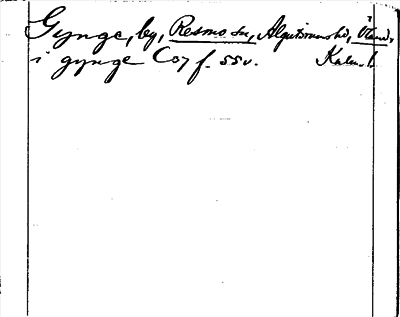 Gynge, by, Resmo sn, Algutsrums hd, Öland,
i gynge C 07 f. 55v. Kalm. l.